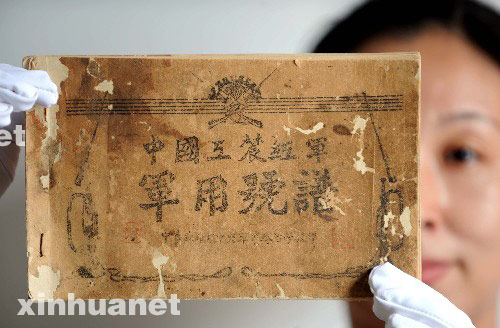 中國工農紅軍
軍用號譜
et
xinhuanet